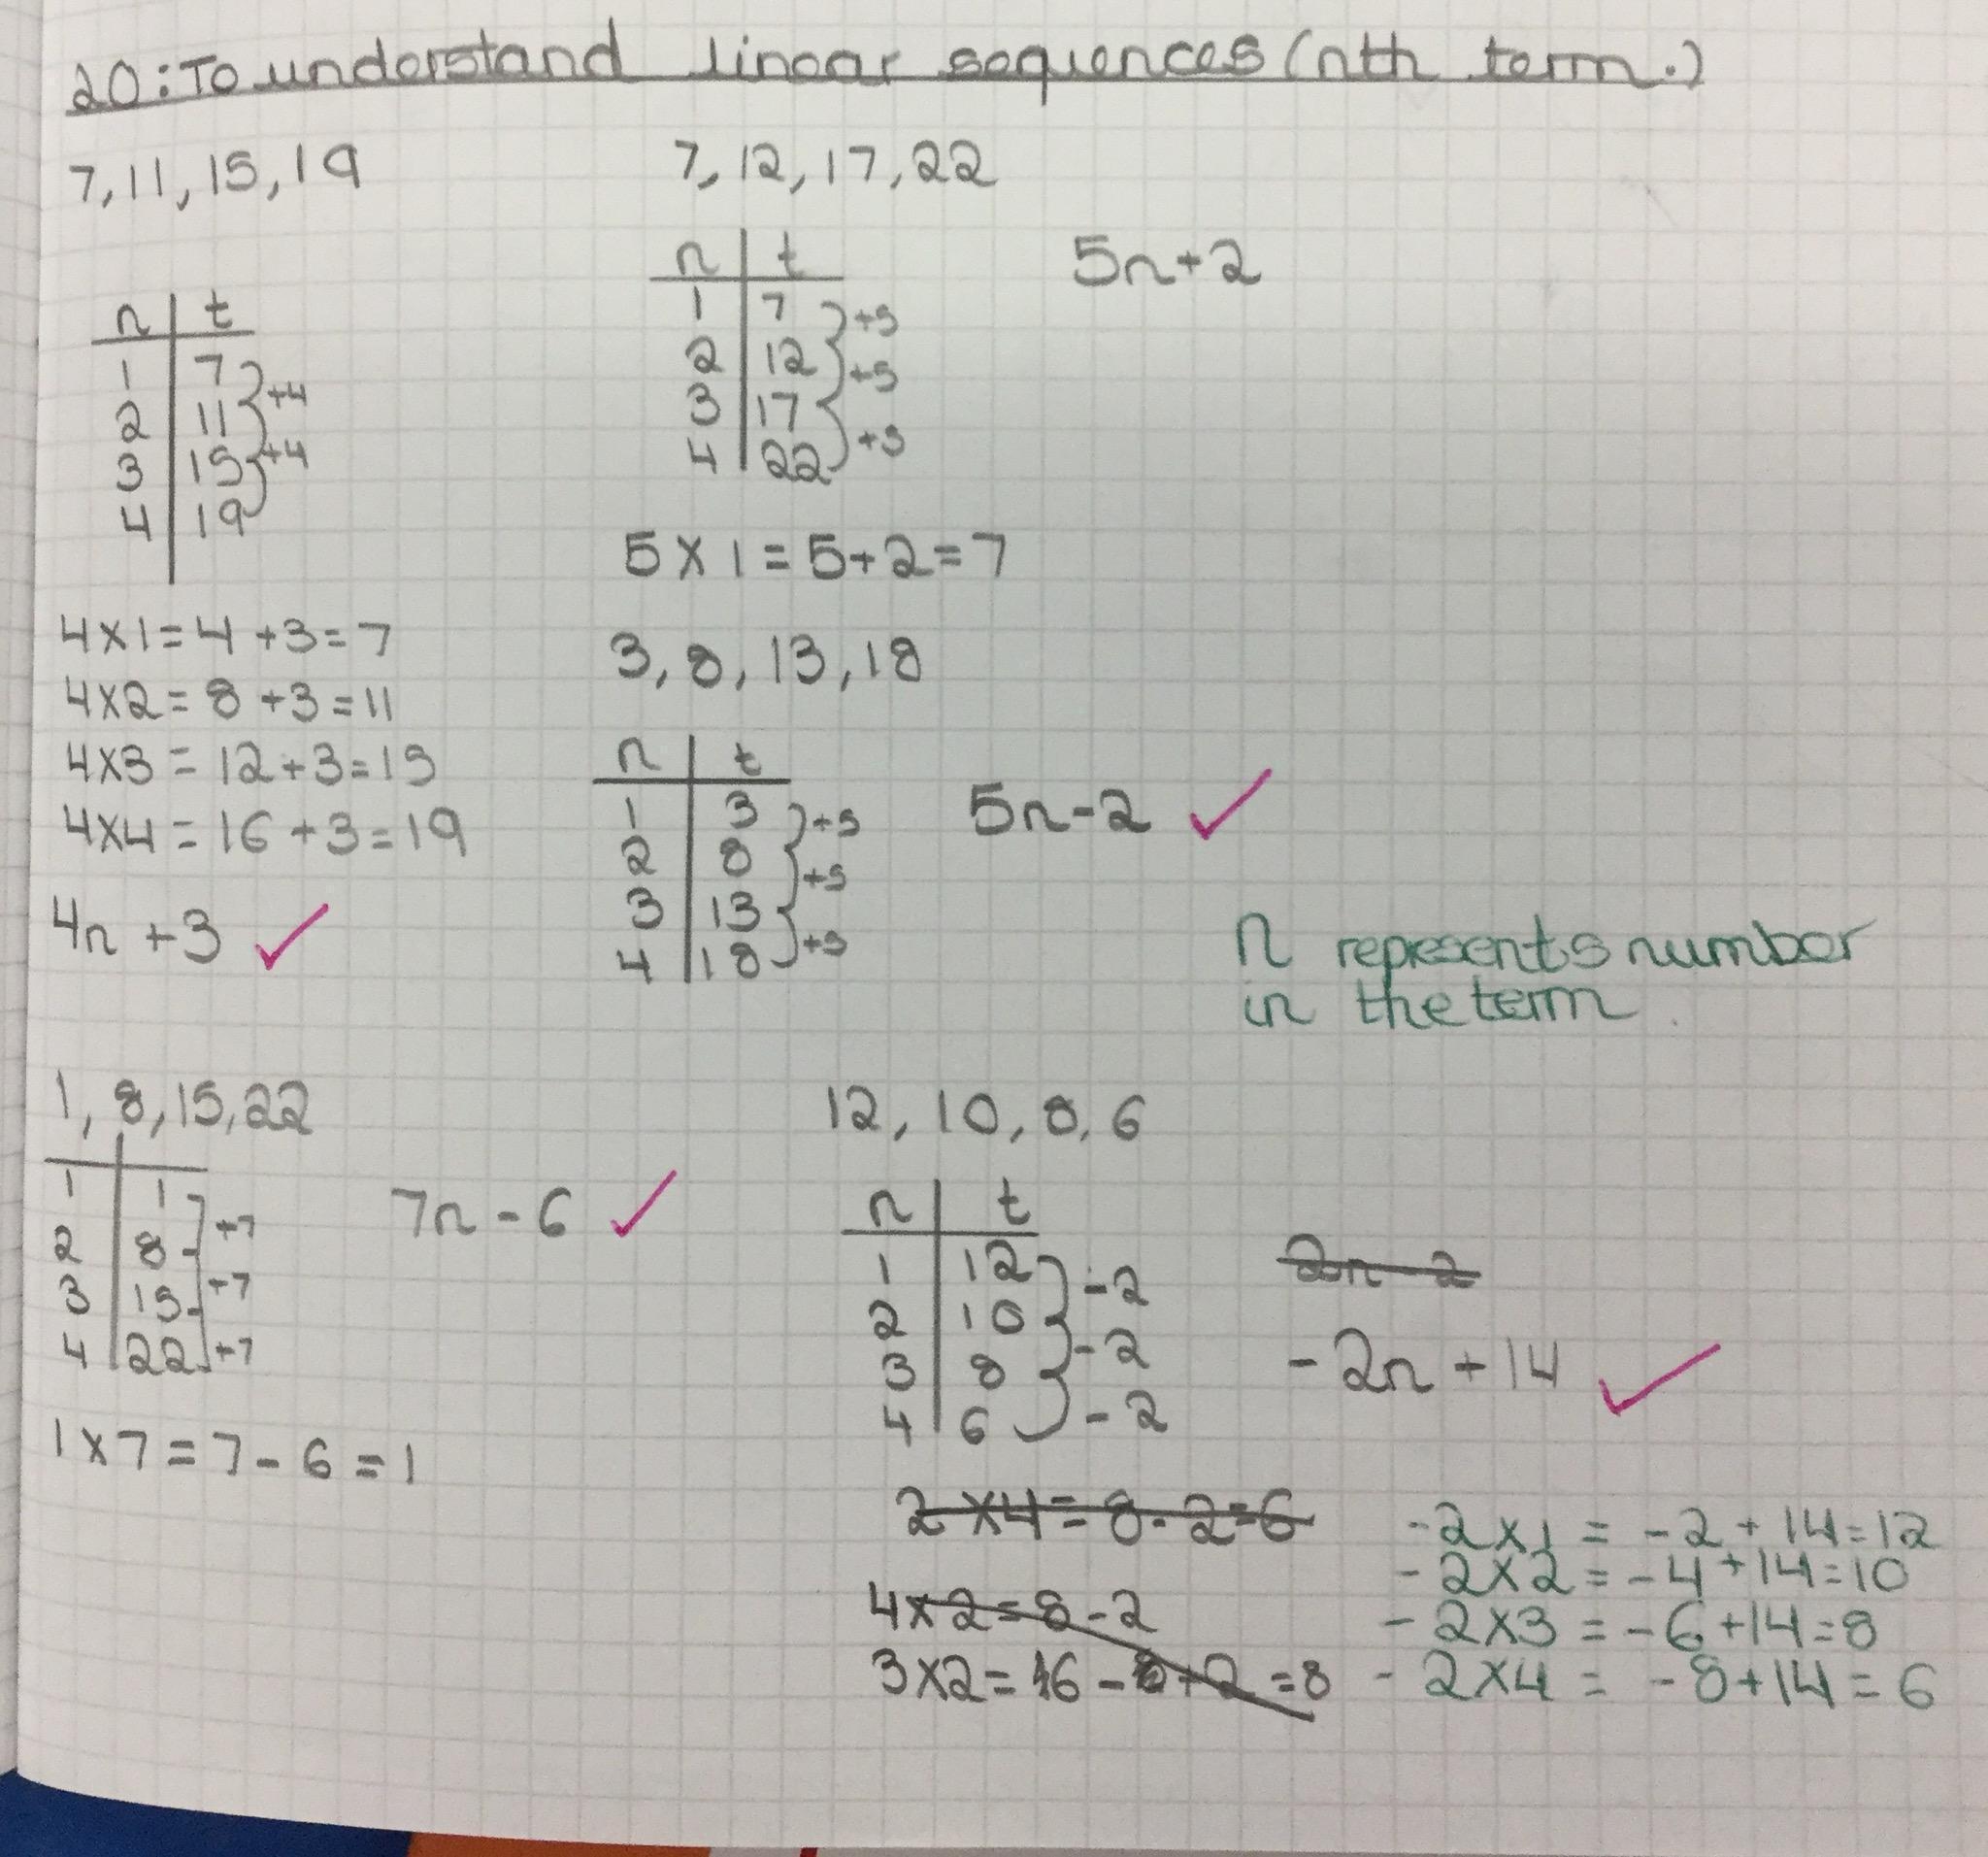 20: To understand linear sequences (nth term.)
7, 11, 15, 19
n t
1 7
2 11
3 15
4 19
+4
+4
4 x 1 = 4 + 3 = 7
4 x 2 = 8 + 3 = 11
4 x 3 = 12 + 3 = 15
4 x 4 = 16 + 3 = 19
4n + 3 ✓
7, 12, 17, 22
n t
1 7
2 12
3 17
4 22
+5
+5
+5
5n + 2
5 x 1 = 5 + 2 = 7
3, 8, 13, 18
n t
1 3
2 8
3 13
4 18
+5
+5
+5
5n - 2 ✓
n represents number
in the term
1, 8, 15, 22
1 1
2 8
3 15
4 22
+7
+7
+7
7n - 6 ✓
1 x 7 = 7 - 6 = 1
12, 10, 8, 6
n t
1 12
2 10
3 8
4 6
-2
-2
-2
2n - 2
-2n + 14 ✓
2 x 4 = 8 - 2 = 6
4 x 2 = 8 - 2
3 x 2 = 16 - + 2 = 8
-2 x 1 = -2 + 14 = 12
-2 x 2 = -4 + 14 = 10
-2 x 3 = -6 + 14 = 8
-2 x 4 = -8 + 14 = 6